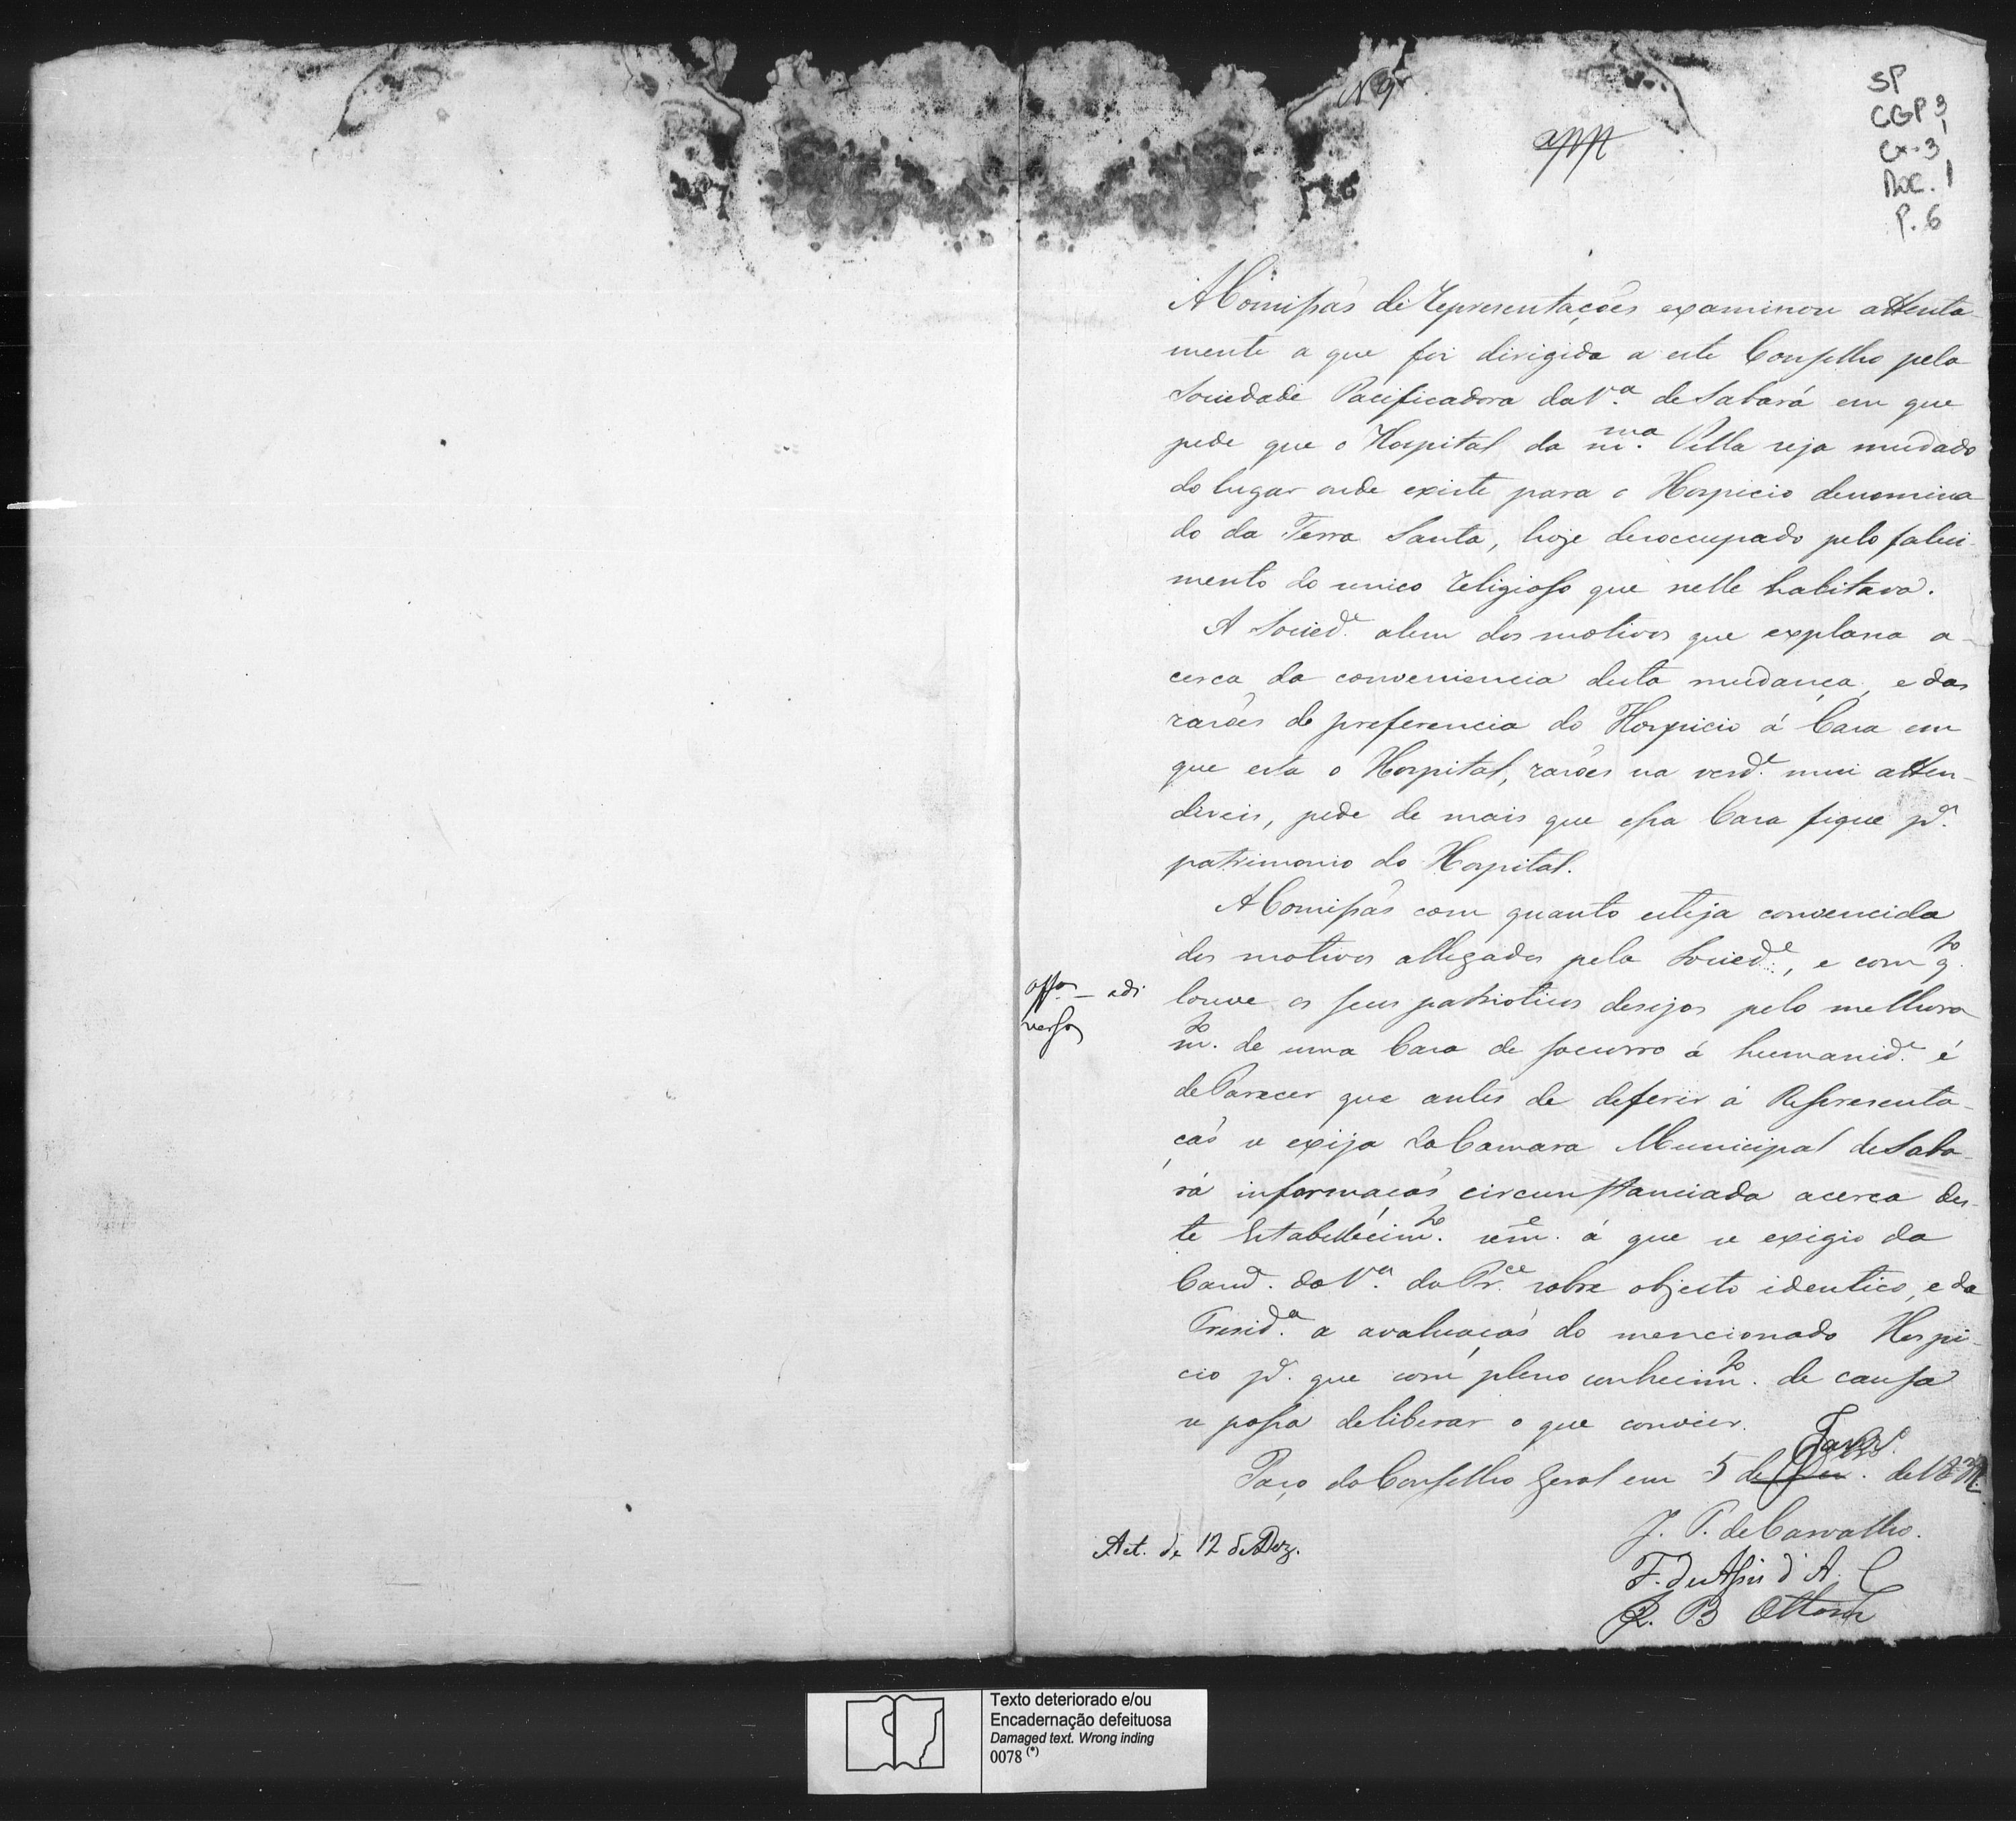 N 9
SP
CGP 3
Cx-3
Doc. 1
P. 6
A Comissaõ de representações examinou attenta-
mente a que foi dirigida a este Conselho pela
Sociedade Pacificadora da Vª. de Sabará em que
pede que o Hospital da mma. Villa seja mudado
do lugar onde existe para o Hospicio denomina
do da Terra Santa, hoje desoccupado pelo faleci-
mento do unico religioso que nelle habitava.
A Socied.e alem dos motivos que explana a-
cerca da conveniencia desta mudança, e das
rasões de preferencia do Hospicio á Casa em
que esta o Hospital, rasões na verd.e mui atten-
diveis, pede de mais que essa Casa fique p.a
patrimonio do Hospital.
A Comissaõ com quanto esteja convencida
dos motivos allegados pela Socied.e, e com q.to
louve os seus patrioticos desejos pelo melhora
m.to de uma Casa de socorro á humanid.e é
de Parecer que antes de deferir á Representa-
çaõ se exija da Camara Municipal de Saba-
rá informaçaõ circunstanciada acerca des-
te Estabellecim.to sem.e á que se exigio da
Cam.a da V.a do Pr.ce sobre objecto identico, e da
Presid.a a avaluaçaõ do mencionado Hospi-
cio p.a que com pleno conhecim.to de causa
se possa deliberar o que convier.
Paço do Conselho Geral em 5 de de 183
J. P. de Carvalho.
F. de Assis d' A. C
R. B Ottoni
adi
Act. de 12 de Dez.
Texto deteriorado e/ou
Encadernação defeituosa
Damaged text. Wrong inding
0078 (*)